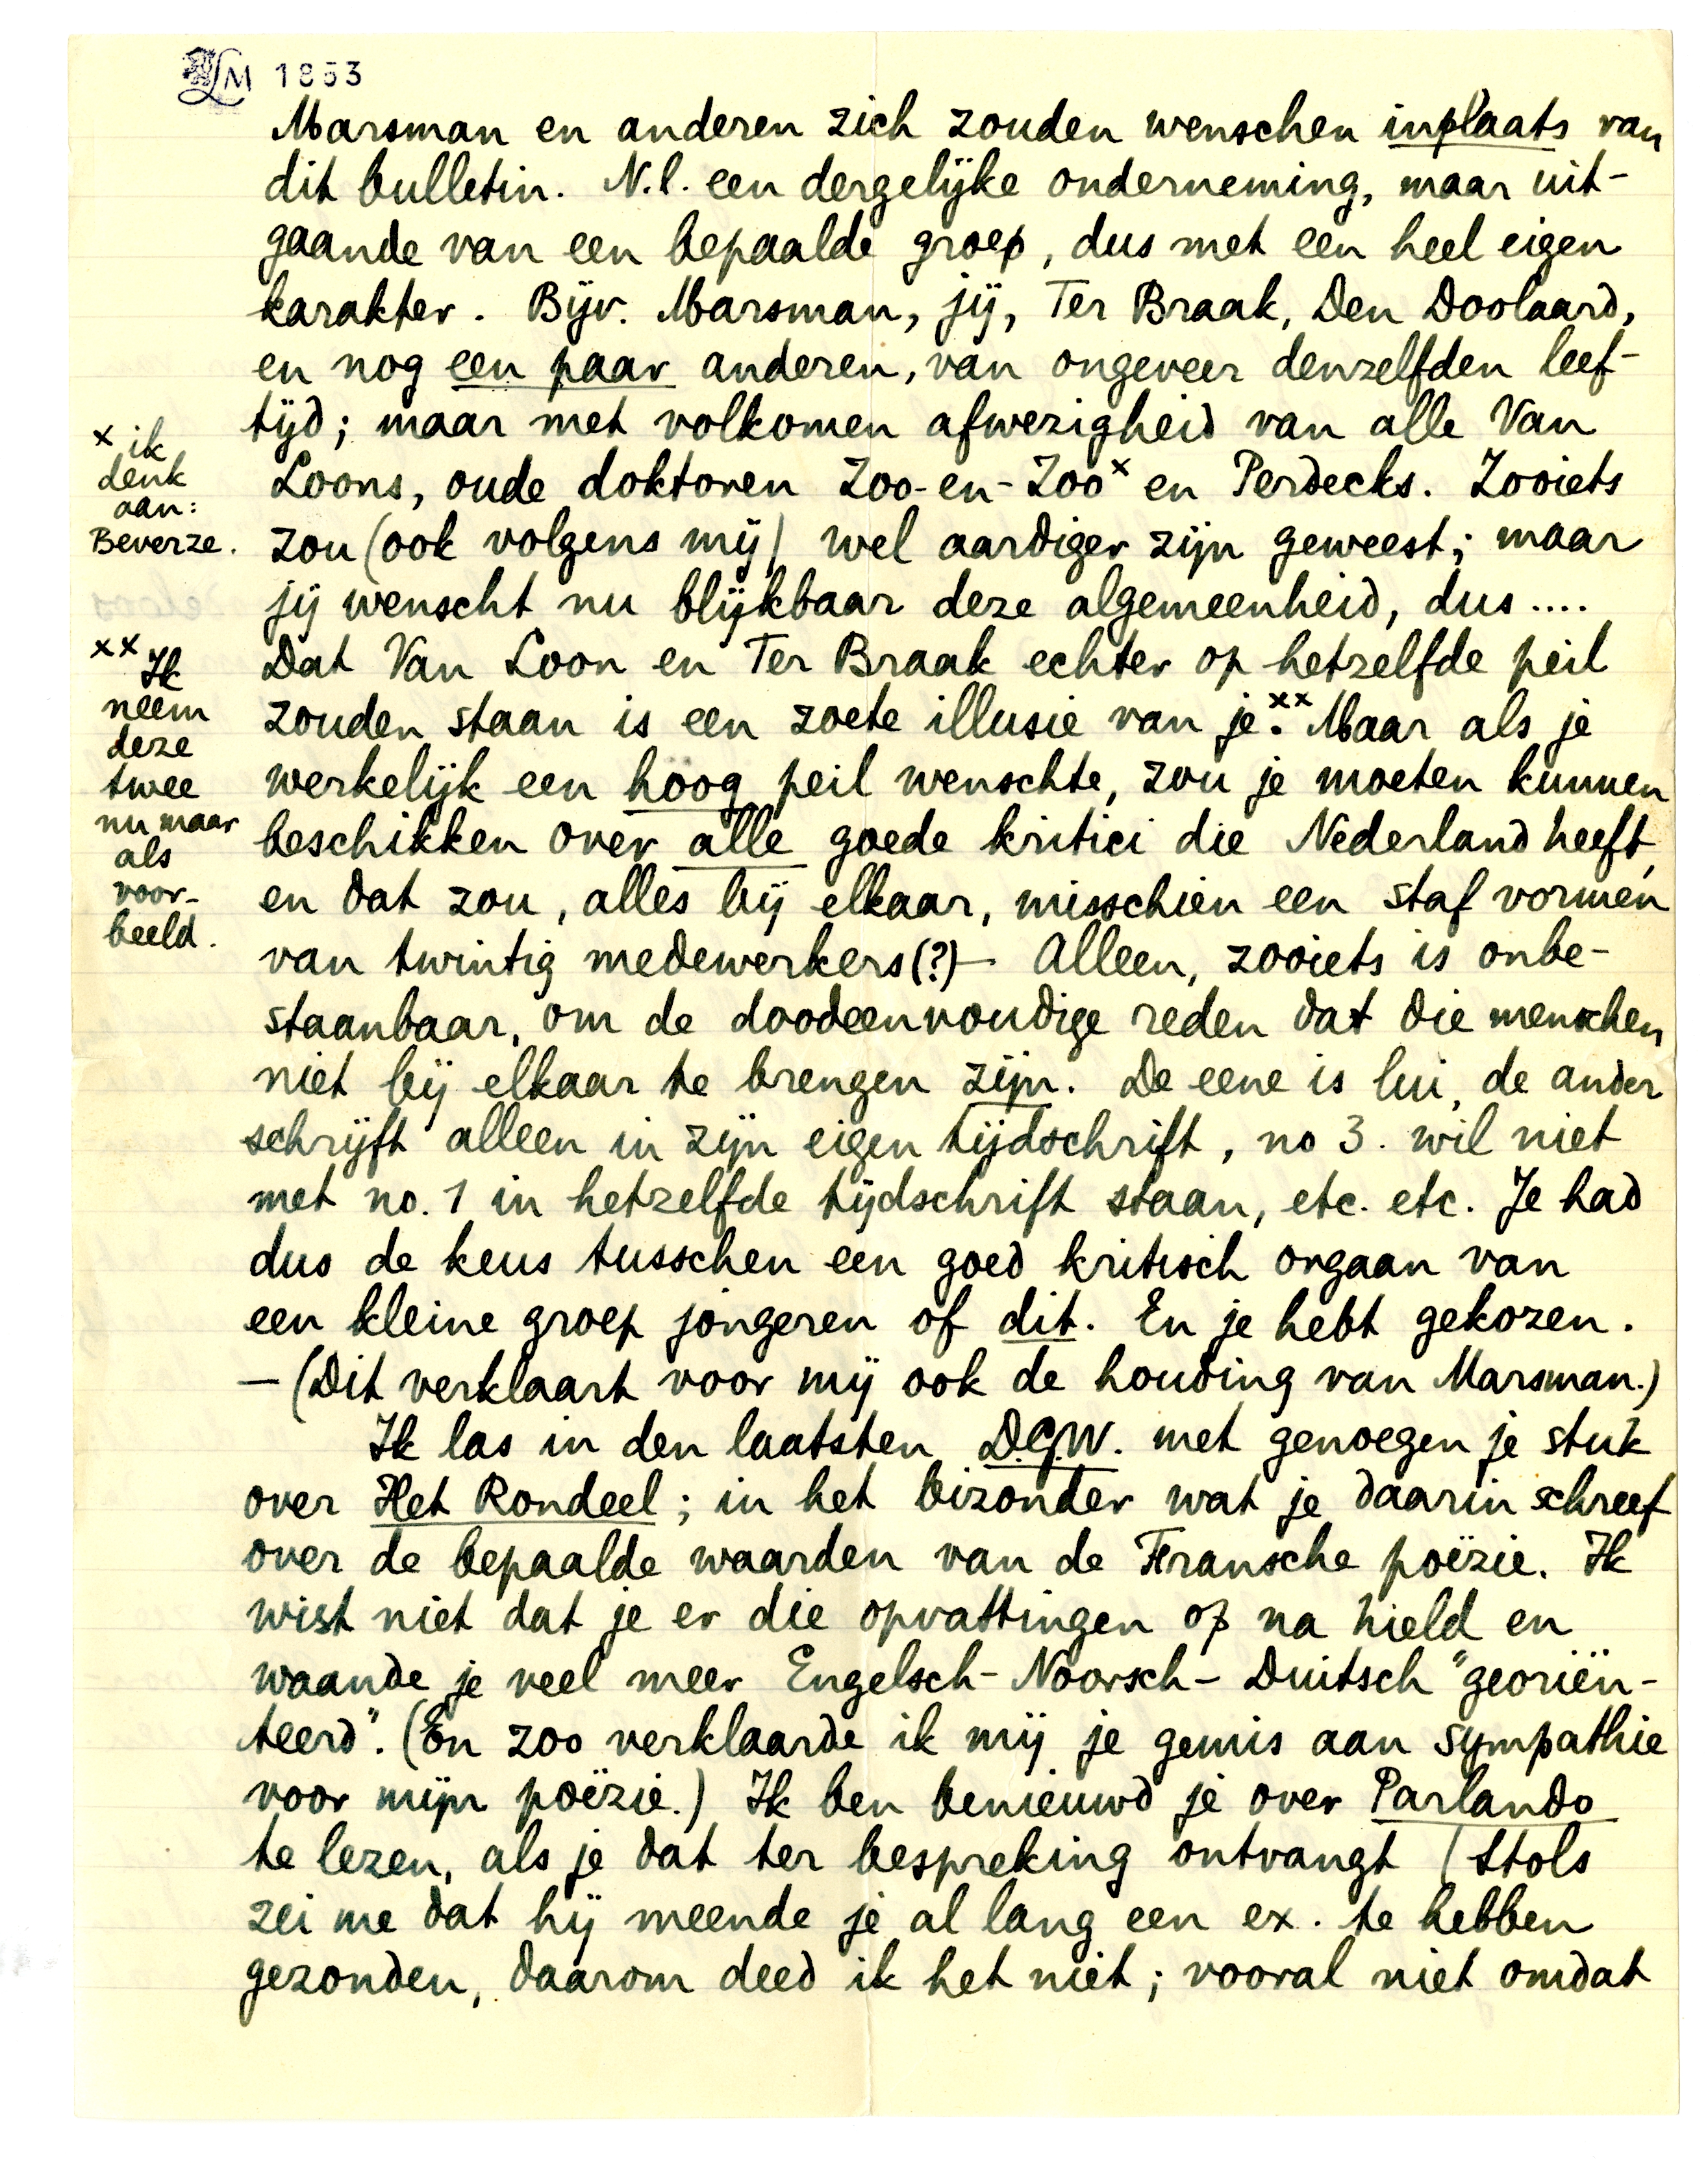 LM 1853
Marsman en anderen zich zouden wenschen inplaats van
dit bulletin. N.l. een dergelijke onderneming, maar uit-
gaande van een bepaalde groep, dus met een heel eigen
karakter. Bijv. Marsman, jij, Ter Braak, Den Doolaard,
en nog een paar anderen, van ongeveer denzelfden leef-
tijd; maar met volkomen afwezigheid van alle Van
Loons, oude doktoren Zoo-en-Zoo x en Perdecks. Zooiets
zou (ook volgens mij) wel aardiger zijn geweest; maar
jij wenscht nu blijkbaar deze algemeenheid, dus ....
Dat Van Loon en Ter Braak echter op hetzelfde peil
zouden staan is een zoete illusie van je. xx Maar als je
werkelijk een hoog peil wenschte, zou je moeten kunnen
beschikken over alle goede kritici die Nederland heeft,
en dat zou, alles bij elkaar, misschien een staf vormen
van twintig medewerkers(?) — Alleen, zooiets is onbe-
staanbaar, om de doodeenvoudige reden dat die menschen
niet bij elkaar te brengen zijn. De eene is lui, de ander
schrijft alleen in zijn eigen tijdschrift, no 3. wil niet
met no. 1 in hetzelfde tijdschrift staan, etc. etc. Je had
dus de keus tusschen een goed kritisch orgaan van
een kleine groep jongeren of dit. En je hebt gekozen.
— (Dit verklaart voor mij ook de houding van Marsman.)
Ik las in den laatsten D.G.W. met genoegen je stuk
over Het Rondeel; in het bizonder wat je daarin schreef
over de bepaalde waarden van de Fransche poëzie. Ik
wist niet dat je er die opvattingen op na hield en
waande je veel meer Engelsch-Noorsch-Duitsch "georiën-
teerd". (En zoo verklaarde ik mij je gemis aan sympathie
voor mijn poëzie.) Ik ben benieuwd je over Parlando
te lezen, als je dat ter bespreking ontvangt (Stols
zei me dat hij meende je al lang een ex. te hebben
gezonden, daarom deed ik het niet; vooral niet omdat
x ik
denk
aan:
Beverze.
xx Ik
neem
deze
twee
nu maar
als
voor-
beeld.